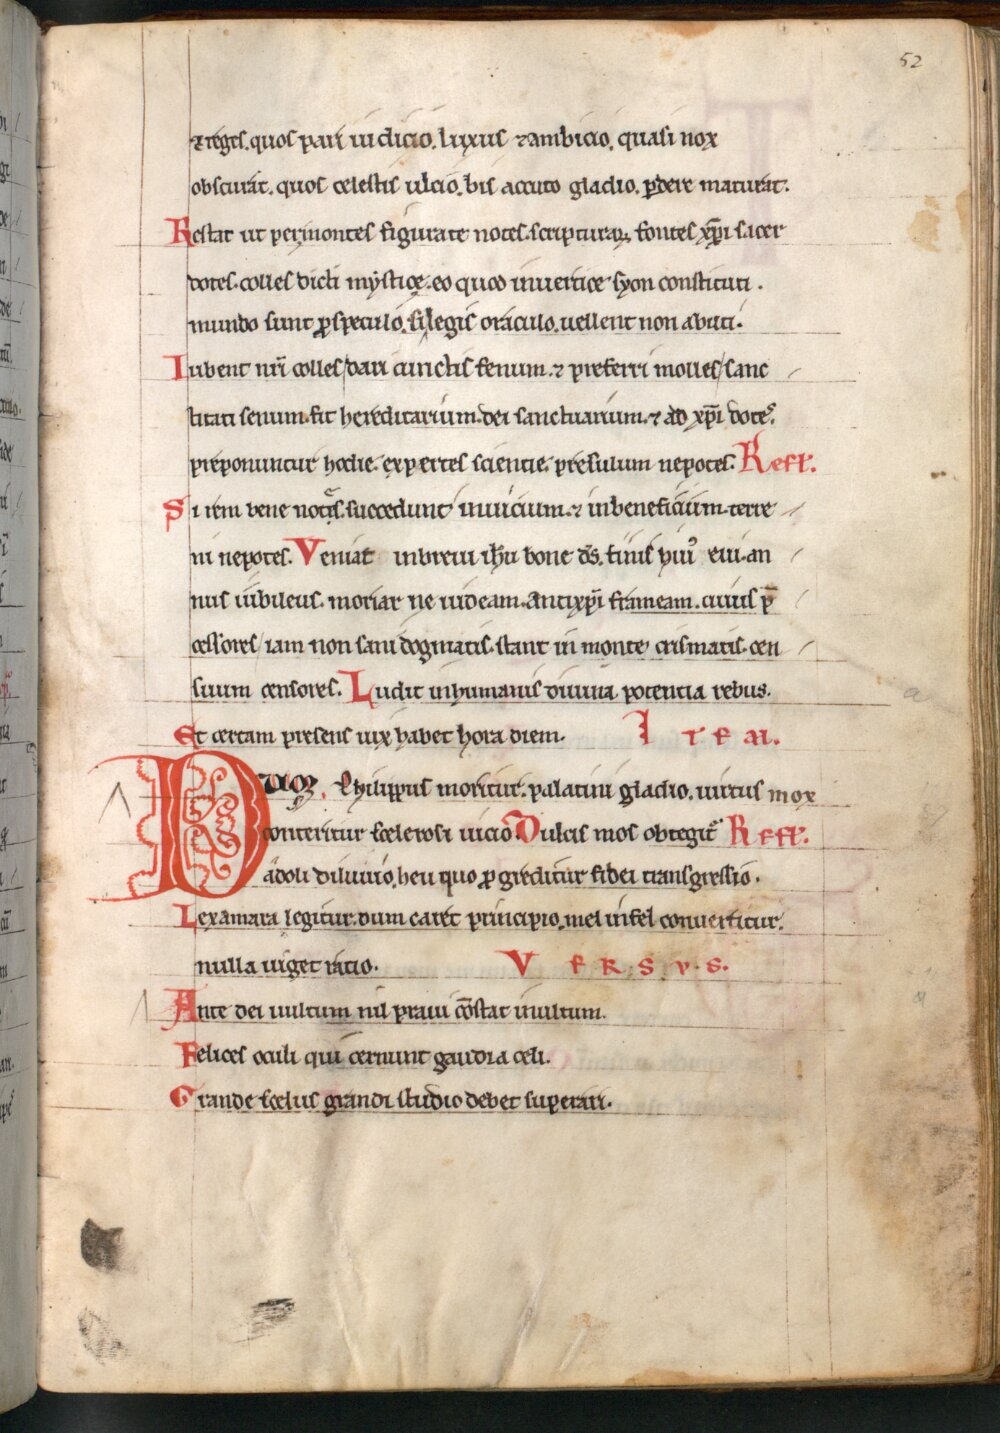 52
⁊ reges. quos pari iudicio. luxus ⁊ ambicio. quasi nox
obscurat. quos celestis ulcio. bis accuto gladio. ꝑdere maturat.
Restat ut per montes figurate notes. scripturaꝝ fontes xp̄i sacer
dotes. colles dicti mystice. eo quod in uertice syon constituti.
mundo sunt ꝓ speculo. si legis oraculo. uellent non abuti.
Iubent nr̄i colles dari cunctis fenum. ⁊ preferri molles sanc
titati senum. fit hereditarium. dei sanctuarium. ⁊ ad xp̄i dotes.
preponuntur hodie. expertes scientie. presulum nepotes. Refł.
Si rem bene notes. succedunt in uicium. ⁊ in beneficium. terre
ni nepotes. Veniat in breui ih̄u bone ds̄. finis huiꝰ eui. an
nus iubileus. moriar ne uideam. antixp̄i frameam. cuius p̄
cessores iam non sani dogmatis. stant in monte crismatis. cen
suum censores. Ludit in humanis diuina potentia rebus.
Et certam presens uix habet hora diem. ITEM.
Dum Philippus moritur. palatini gladio. uirtus mox
conteritur scelerosi uicio. Dulcis mos obtegitᷣ Refł.
adoli diluuio. heu quo ꝓgreditur fidei transgressio.
Lex amara legitur. dum caret principio. mel in fel conuertitur.
nulla uiget racio. VERSVS.
Ante dei uultum nil praui cōstat inultum.
Felices oculi qui cernunt gaudia celi.
Grande scelus grandi studio debet superari.